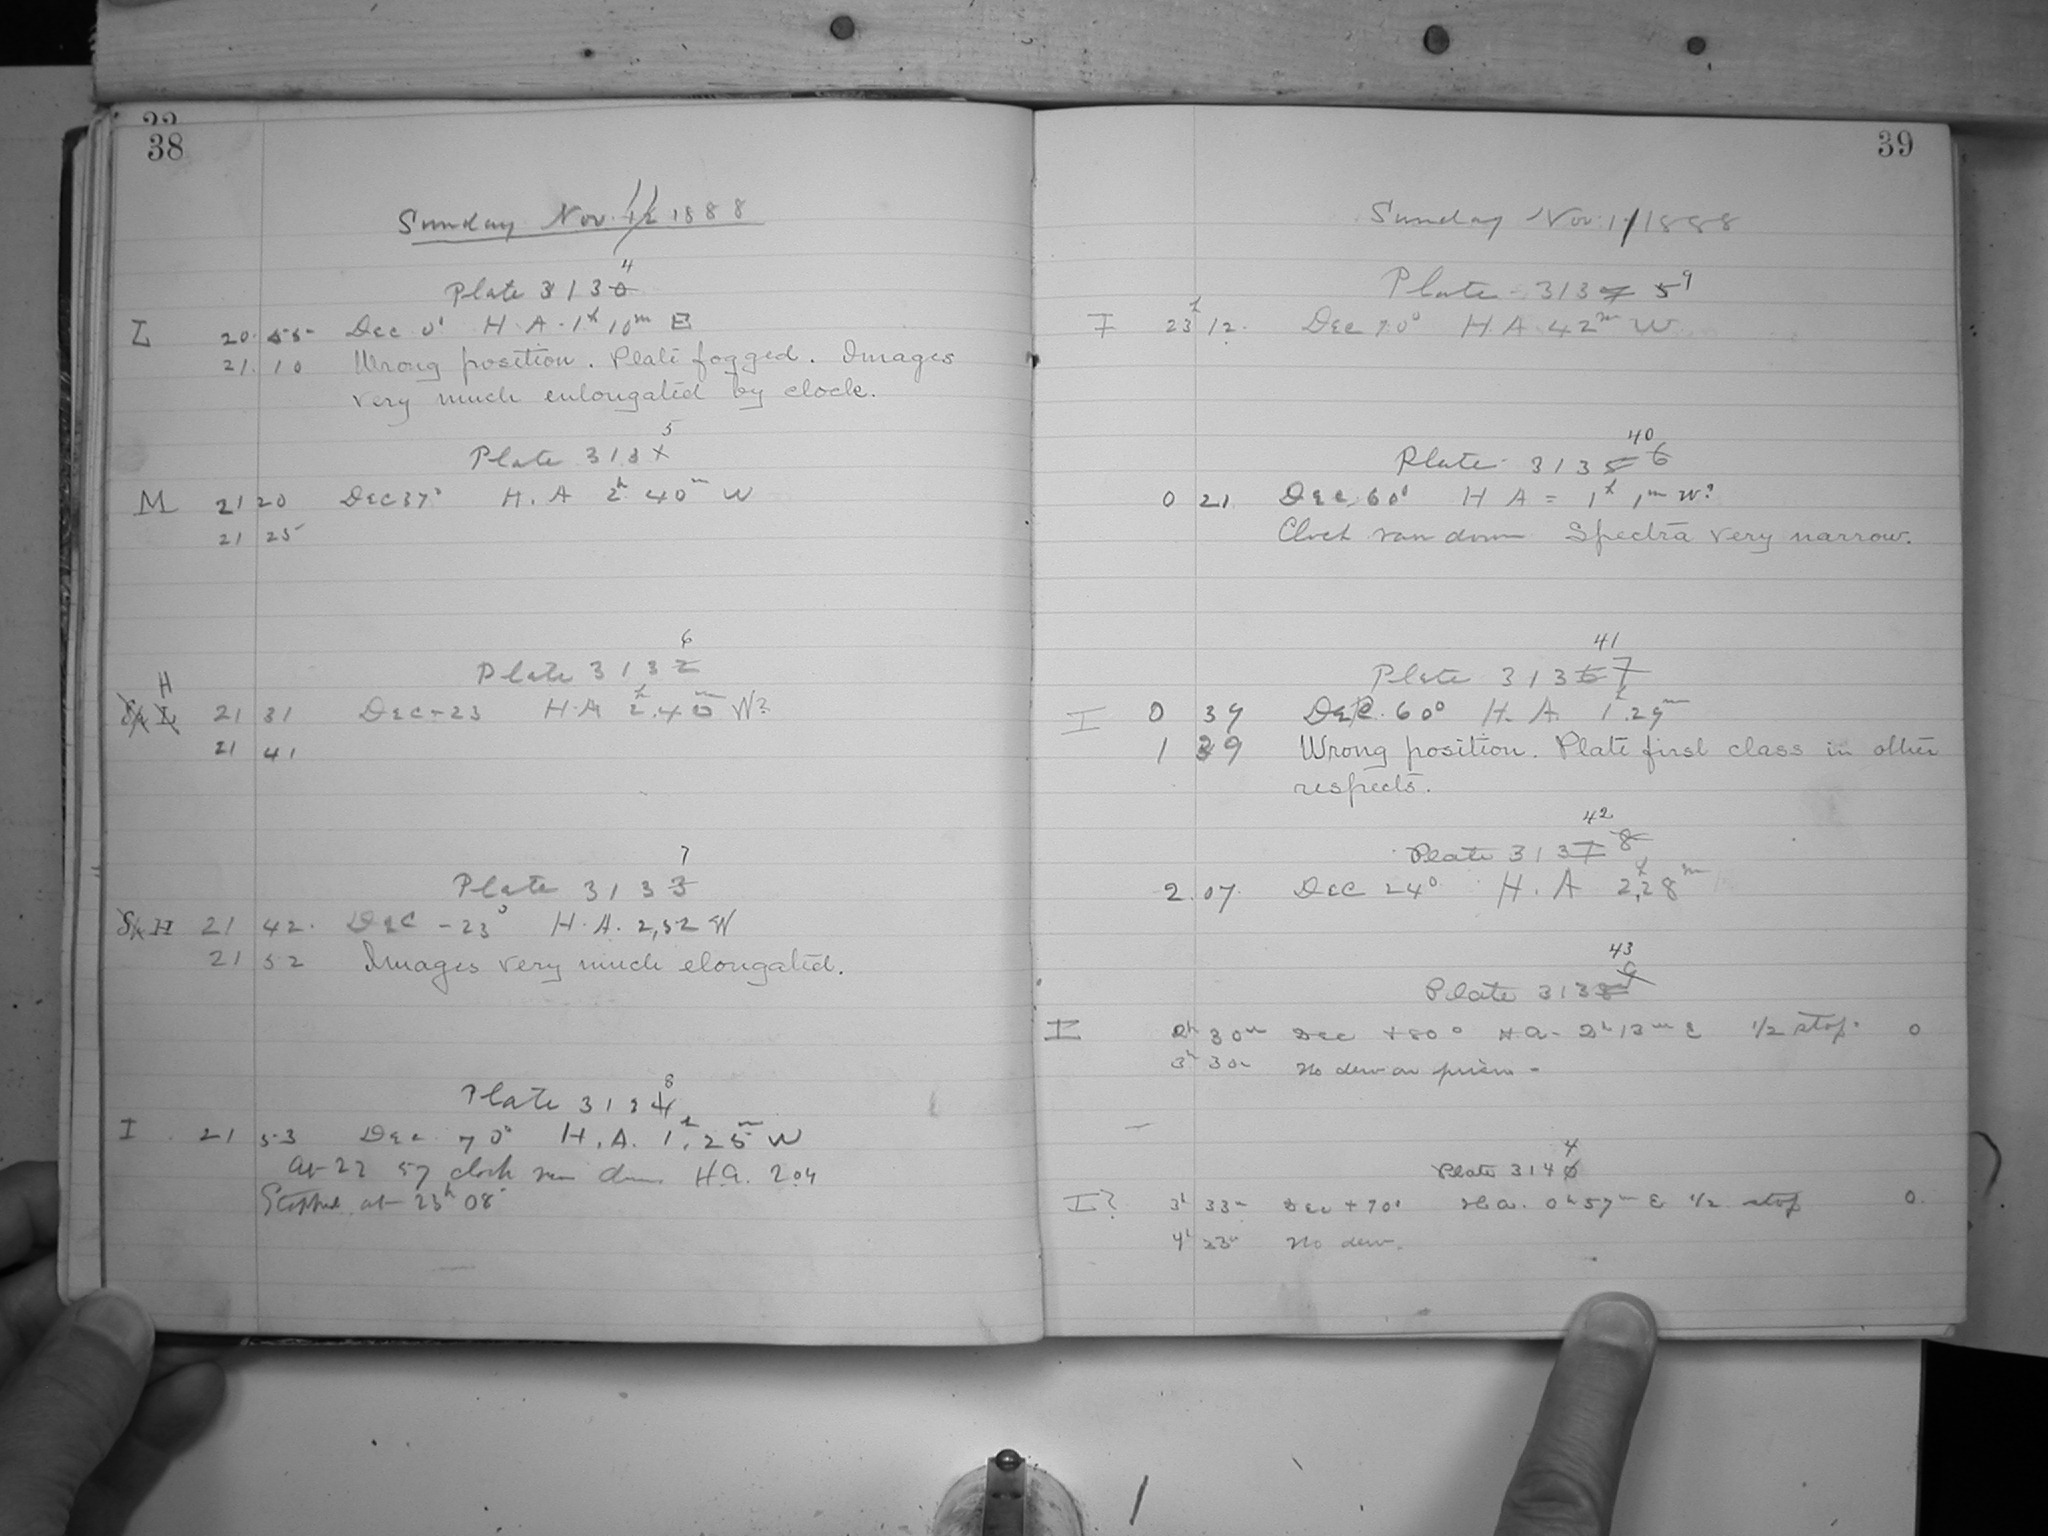 38
Sunday Nov. 11 1888
4
Plate 3130
I 20 55 Dec 0° H. A. 1h 10m E
21. 10 Wrong position. Plate fogged. Images
very much enlongated by clock.
5
Plate 3131
M 21 20 Dec 37° H. A 2h 40m W
21 25
6
Plate 3132
H
21 31 Dec -23 H A 2h.40m W?
21 41
7
Plate 3133
H 21 42. Dec -23° H. A. 2,52 W
21 52 Images very much elongated.
8
Plate 3134
I 21 53 Dec. 70° H. A. 1h.25m W
At 22 57 clock run down H.A. 2.04
Stopped at 23h 08
39
Sunday Nov. 11 1888
9
Plate 313 5
I 23h 12. Dec 70° H A 42m W
40
Plate 3135 6
0 21. Dec. 60° H A = 1h 1m W?
Clock ran down Spectra very narrow.
41
Plate 3136 7
I 0 39 Dec. 60° H. A. 1h.29m
1 39 Wrong position. Plate first class in other
respects.
42
Plate 3137 8
2. 07. Dec 24° H. A 2h,28m
43
Plate 3138 9
I 2h 30m Dec +80° H.A. 2h 13m E 1/2 stop. 0
3h 30m No dew on prism -
4
Plate 3140
I? 3h 33m Dec +70° H.a. 0h 57m E 1/2 stop 0.
4h 33m No dew.